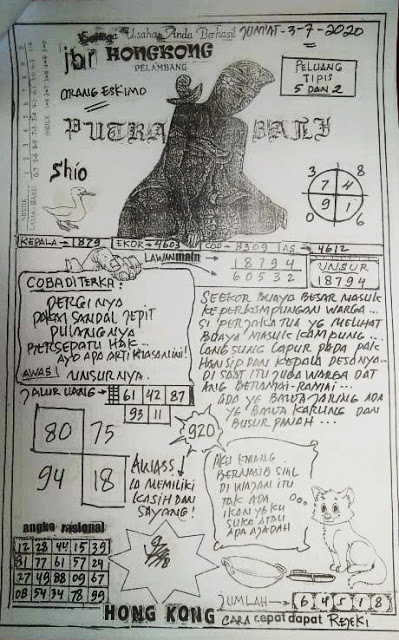 Semoga Usaha Anda Berhasil
JUM'AT-3-7-2020
jbr HONGKONG
PELAMBANG
ORANG ESKIMO
PELUANG
TIPIS
5 DAN 2
PUTRA BALI
Shio
3 8
7 4
9 1
0 6
KEPALA → 1879
EKOR → 4603
COP → 8309
AS → 4612
LAWAN main
18794
60532
UNSUR
18794
COBA DITERKA:
PERGINYA
PAKAI SANDAL JEPIT
PULANGNYA
BERSEPATU HAK...
AYO APA ARTI KIASAN INI!
AWAS! UNSURNYA.
SEEKOR BUAYA BESAR MASUK
KEPERKAMPUNGAN WARGA...
SI PERJAKA TUA YG MELIHAT
BUAYA MASUK KAMPUNG...
LANGSUNG LAPUR PADA PAK
HANSIP DAN KEPALA DESANYA...
DI SAAT ITU JUGA WARGA DAT
ANG BERAMAI-RAMAI...
ADA YG BAWA JARING ADA
YG BAWA KARUNG DAN
BUSUR PANAH...
JALUR UANG → 61 42 87
93 11
80 75
94 18
920
AWASS
IA MEMILIKI
KASIH DAN
SAYANG!
AKU EMANG
BERNASIB SIAL
DI WAJAN ITU
TAK ADA
IKAN YG KU
SUKA ATAU
APA AJA DAH
angka rasional
12 28 44 15 39
31 77 61 57 24
27 49 88 09 67
08 54 34 78 99
JUMLAH → 6 4 5 1 8
HONG KONG CARA cepat dapat REJEKI